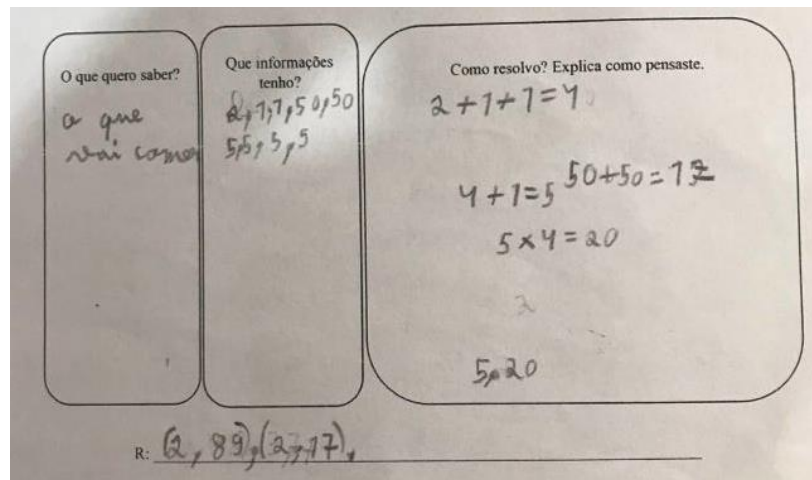 O que quero saber?
o que
vai comer
Que informações
tenho?
2,1,1,50,50
5,5,5,5
Como resolvo? Explica como pensaste.
2+1+1=4
4+1=5 50+50=1
5×4=20
2
5,20
R: (2,89),(2,17),